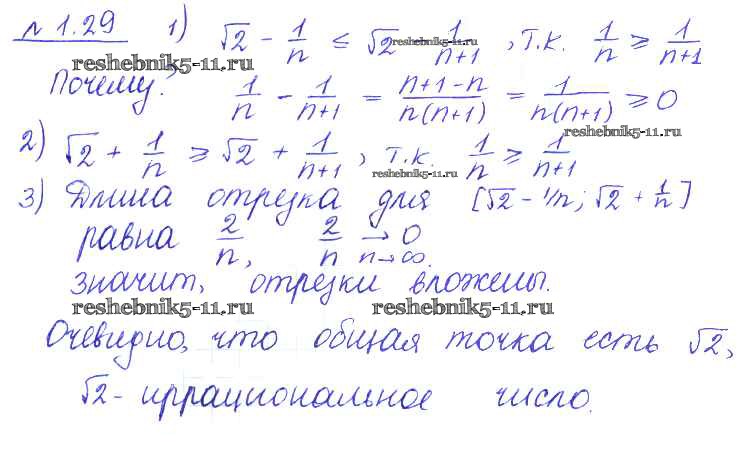 № 1.29 1) √2 - 1/n ≤ √2 - 1/(n+1), т.к. 1/n ≥ 1/(n+1)
reshebnik5-11.ru
reshebnik5-11.ru
Почему? 1/n - 1/(n+1) = (n+1-n)/(n(n+1)) = 1/(n(n+1)) ≥ 0
reshebnik5-11.ru
2) √2 + 1/n ≥ √2 + 1/(n+1), т.к. 1/n ≥ 1/(n+1)
reshebnik5-11.ru
3) Длина отрезка для [√2 - 1/n; √2 + 1/n]
равна 2/n, 2/n → 0 n→∞.
значит, отрезки вложены.
reshebnik5-11.ru reshebnik5-11.ru
Очевидно, что общая точка есть √2,
√2 - иррациональное число.